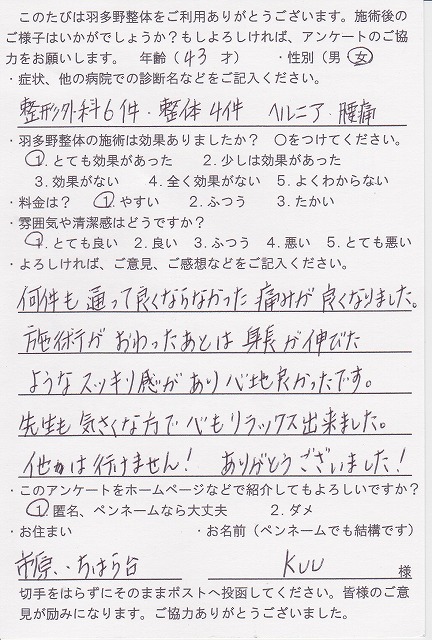 このたびは羽多野整体をご利用ありがとうございます。施術後の
ご様子はいかがでしょうか？もしよろしければ、アンケートのご協
力をお願いします。 年齢（43 才） ・性別（男 女）
・症状、他の病院での診断名などをご記入ください。
整形外科6件・整体4件 ヘルニア・腰痛
・羽多野整体の施術は効果ありましたか？ ○をつけてください。
1. とても効果があった 2. 少しは効果があった
3. 効果がない 4. 全く効果がない 5. よくわからない
・料金は？ 1. やすい 2. ふつう 3. たかい
・雰囲気や清潔感はどうですか？
1. とても良い 2. 良い 3. ふつう 4. 悪い 5. とても悪い
・よろしければ、ご意見、ご感想などをご記入ください。
何件も通って良くならなかった痛みが良くなりました。
施術がおわったあとは身長が伸びた
ようなスッキリ感があり心地良かったです。
先生も気さくな方で心もリラックス出来ました。
他かは行けません！ ありがとうございました！
・このアンケートをホームページなどで紹介してもよろしいですか？
1. 匿名、ペンネームなら大丈夫 2. ダメ
・お住まい ・お名前（ペンネームでも結構です）
市原・ちはら台 KUU 様
切手をはらずにそのままポストへ投函してください。皆様のご意
見が励みになります。ご協力ありがとうございました。